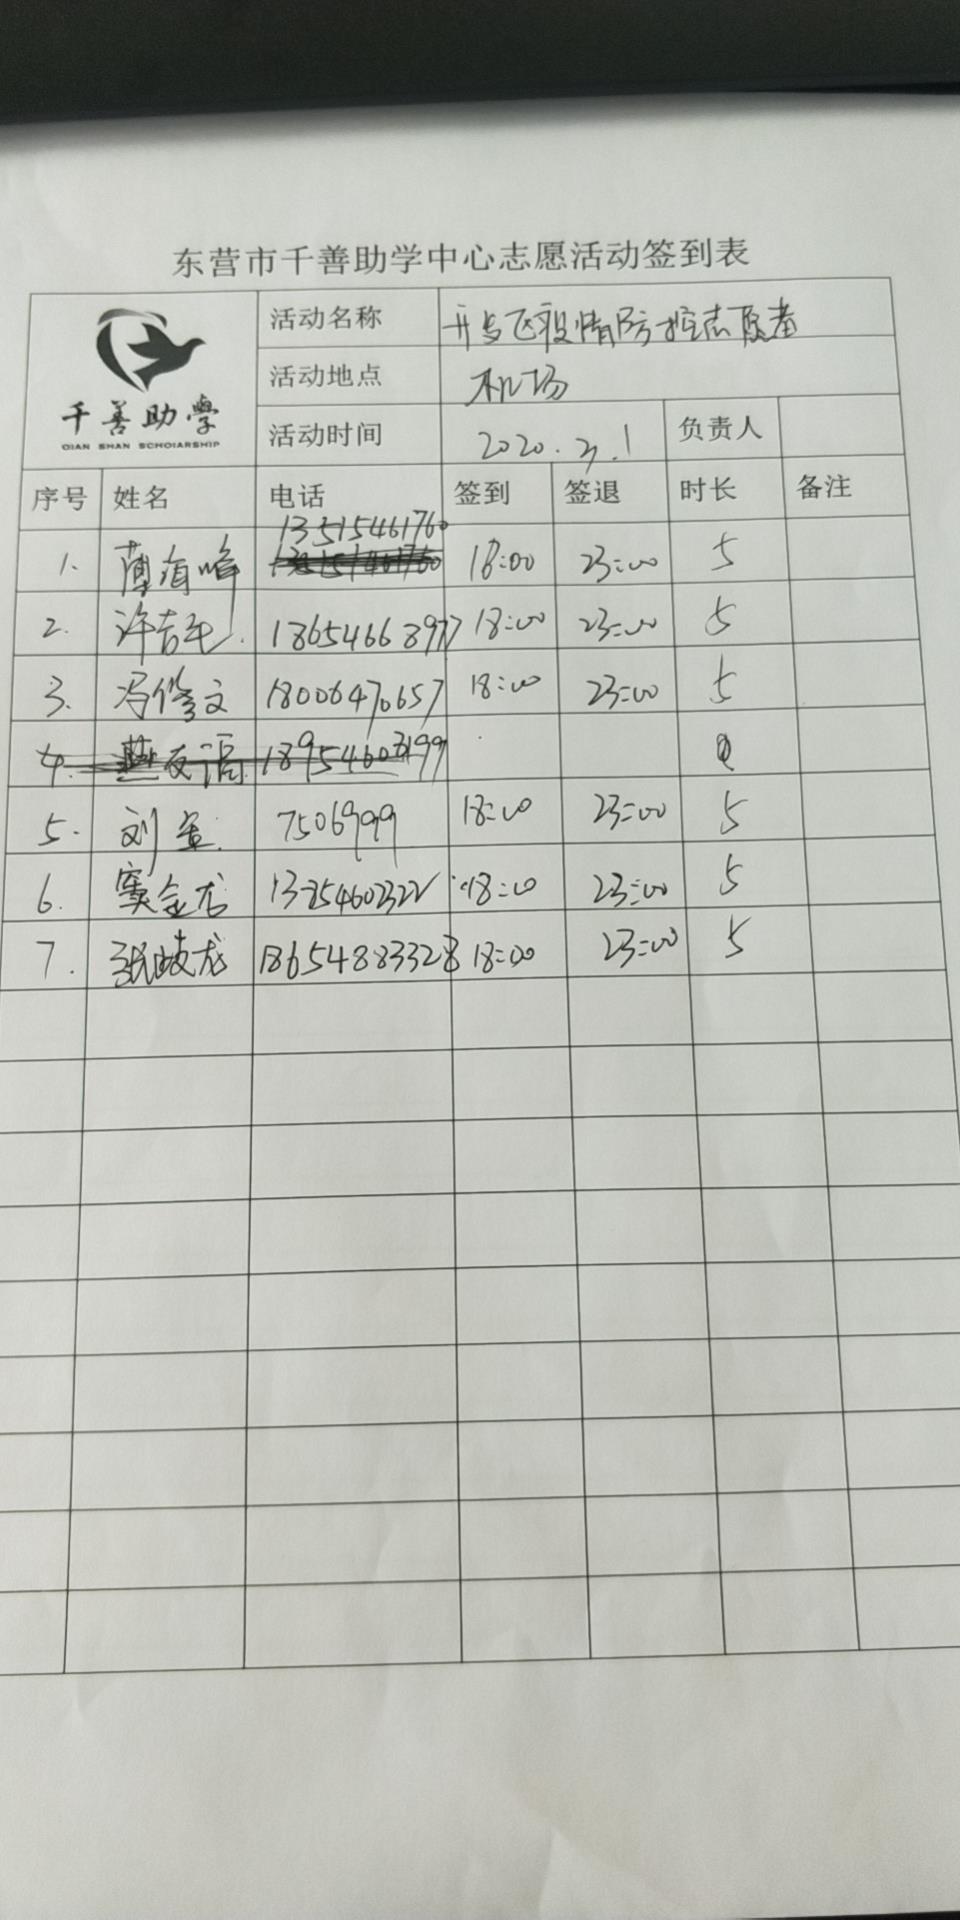 东营市千善助学中心志愿活动签到表
千善助學
QIAN SHAN SCHOIARSHIP
活动名称 开发区疫情防控志愿者
活动地点 机场
活动时间 2020. 3. 1 负责人
序号 姓名 电话 签到 签退 时长 备注
13515461760
1. 薄有峰 13515461760 18:00 23:00 5
2. 许吉 18654668977 18:00 23:00 5
3. 冯俊文 18006470657 18:00 23:00 5
4. 友 18954603199
5. 刘军 7506999 18:00 23:00 5
6. 窦金龙 18:00 23:00 5
7. 张岐龙 18654883328 18:00 23:00 5